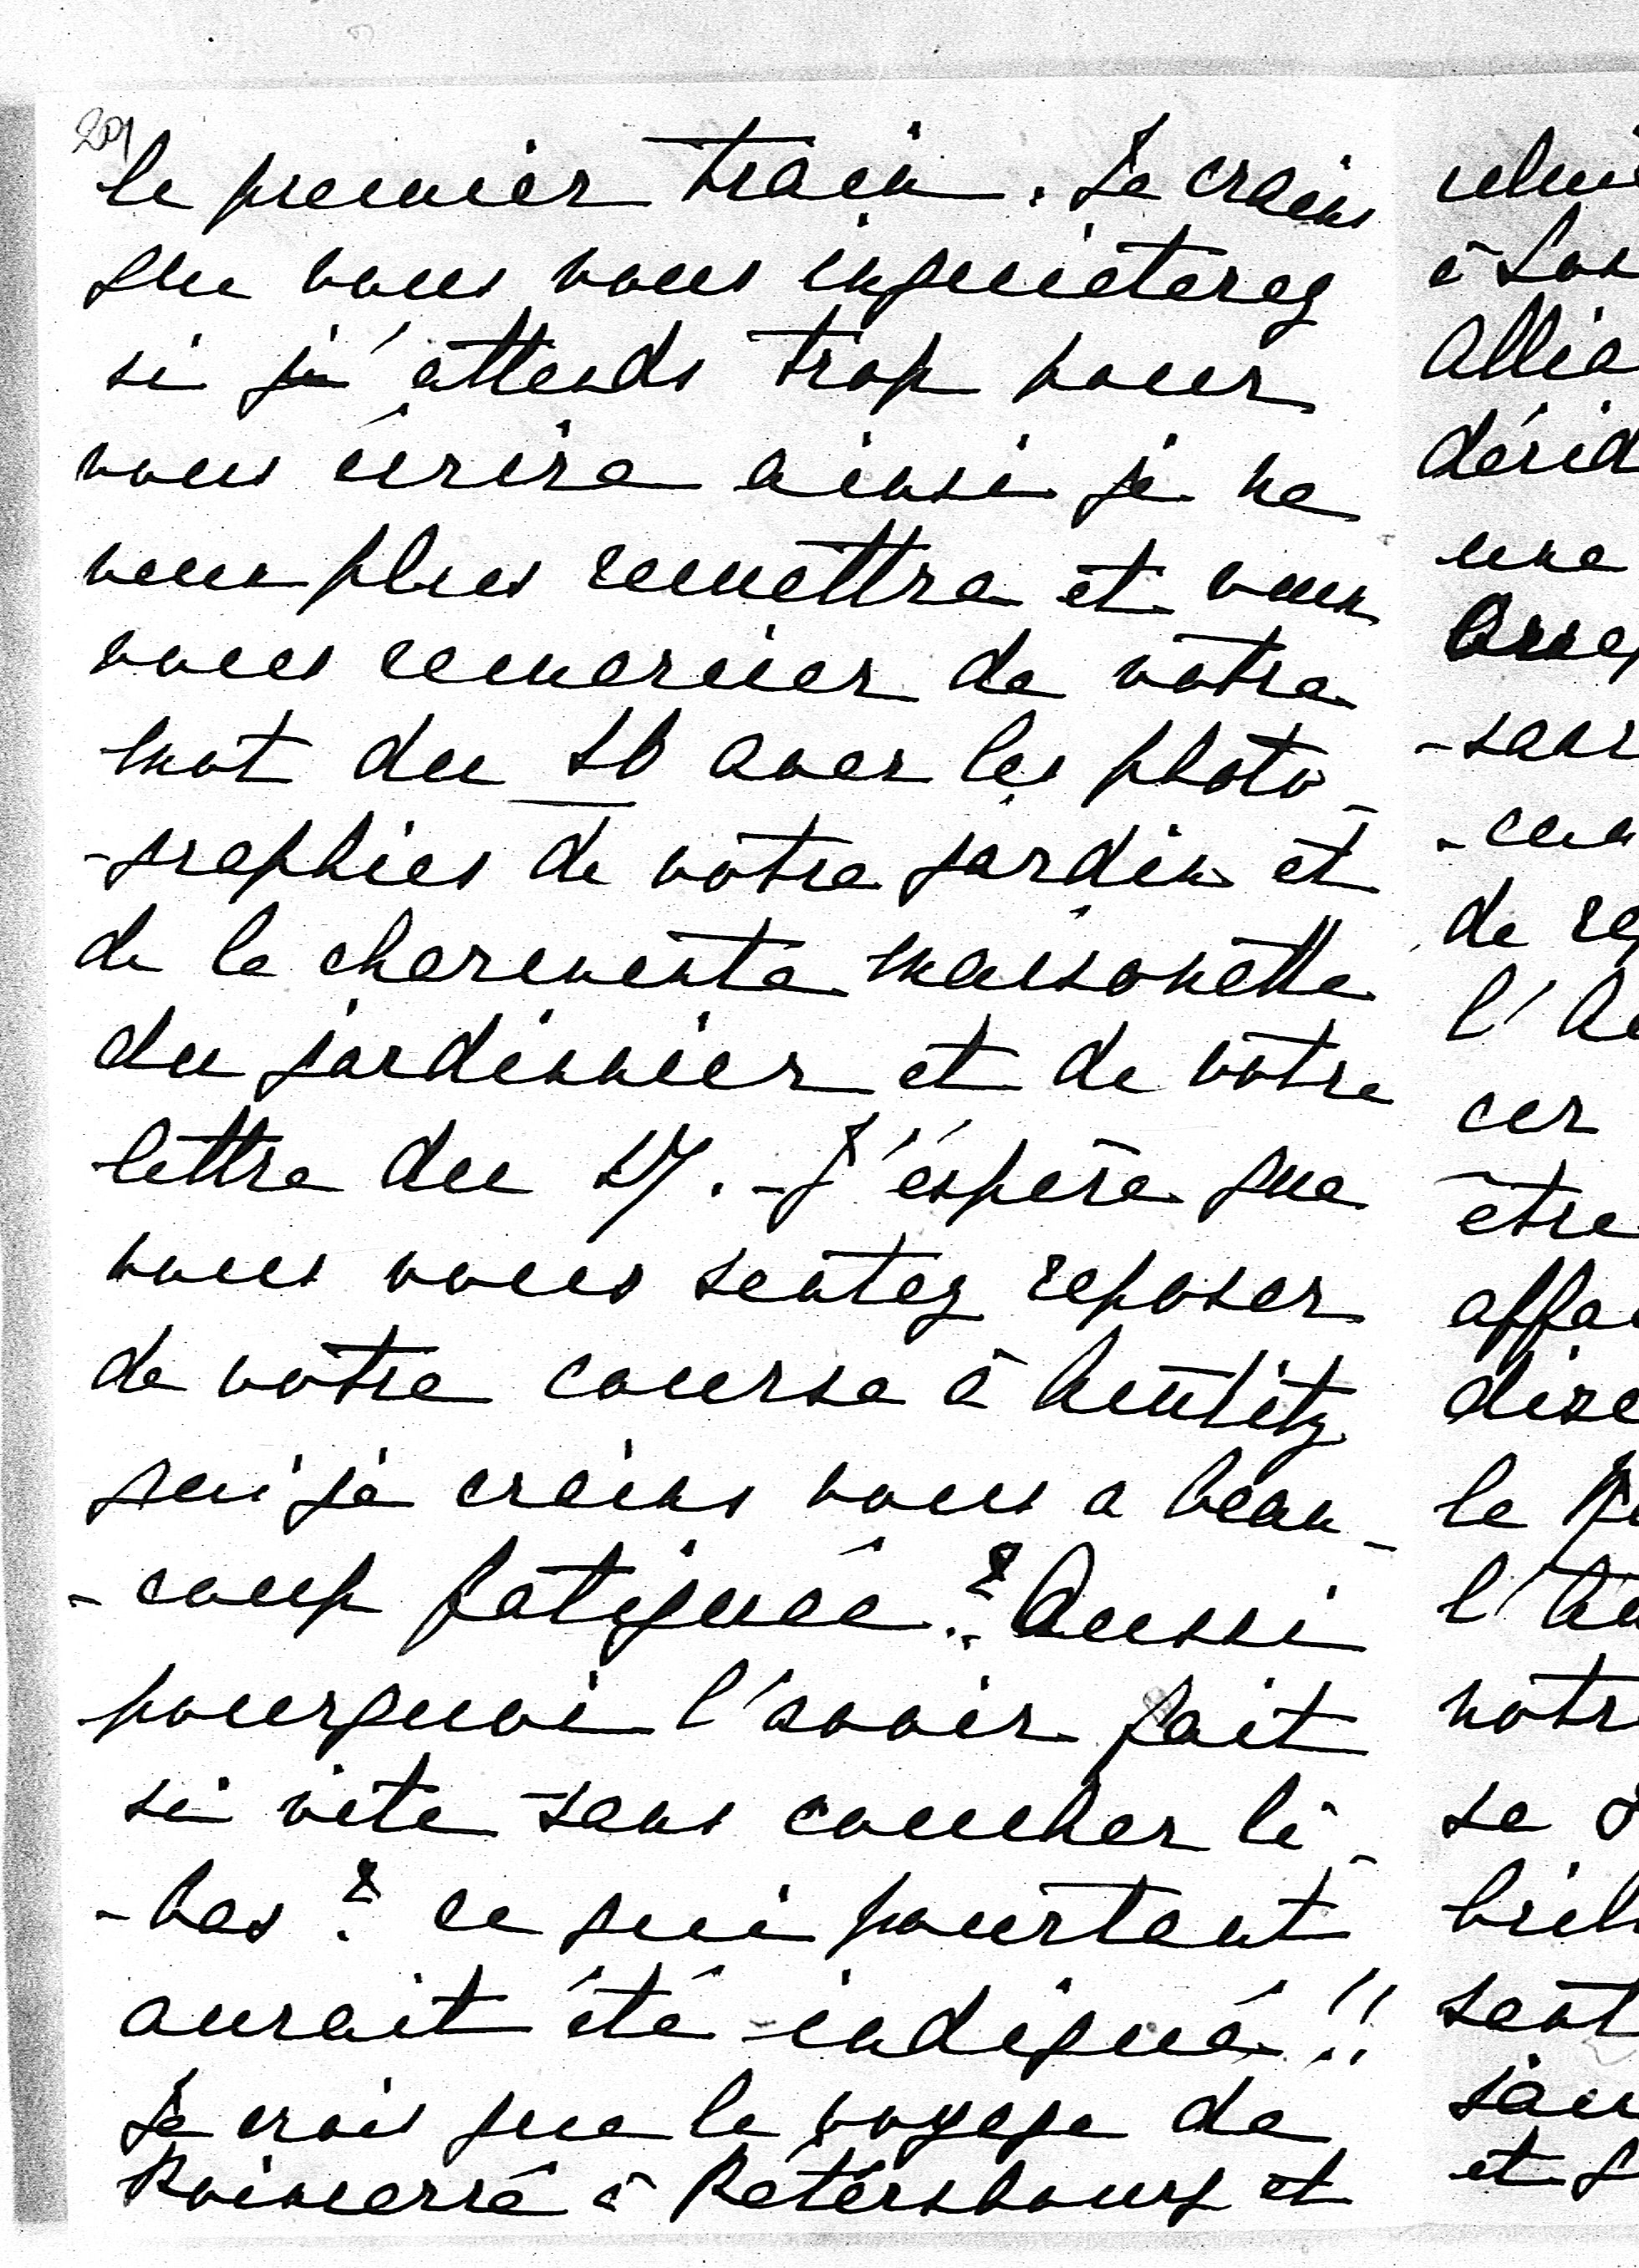 201
le premier train. Je crains
que vous vous inquiéterez
si j'attends trop pour
vous écrire ainsi je ne
veux plus remettre et veux
vous remercier de votre
mot du 16 avec les photo-
-graphies de votre jardin et
de la charmante maisonette
du jardinnier et de votre
lettre du 17. - J'éspère que
vous vous sentez reposer
de votre course à
qui je crains vous a beau-
-coup fatiguée? Aussi
pourquoi l'avoir fait
si vite sans coucher là-
-bas? ce qui pourtant
aurait été indiqué!!
Je crois que le voyage de
Poincarré à Pétersbourg et
celui
à Lon
Allia
décid
une
de re
cer
être
affai
dire
le
notre
se
bril
sent
et